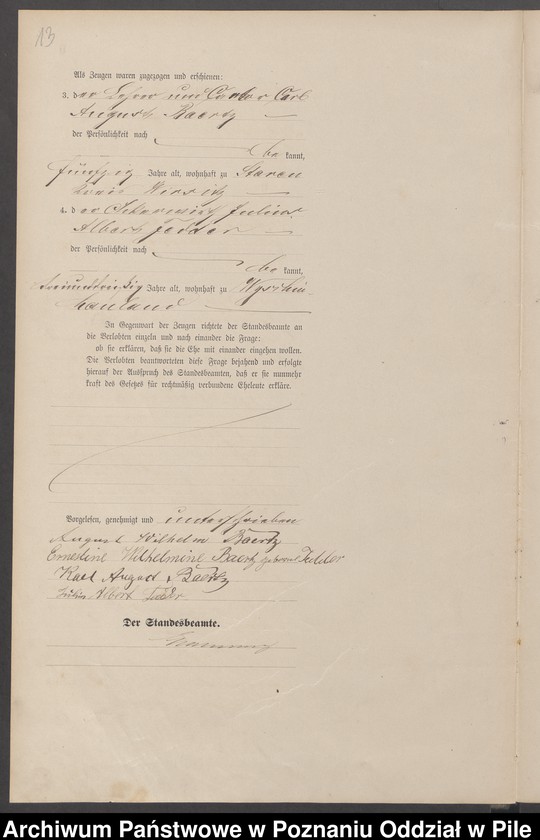 13
Als Zeugen waren zugezogen und erschienen:
3. der Lehrer und Cantor Carl
August Baertz
der Persönlichkeit nach
be kannt,
fünfzig Jahre alt, wohnhaft zu
Kreis Wirsitz
4. der Julius
Albert Fedder
der Persönlichkeit nach
be kannt,
Jahre alt, wohnhaft zu
hauland
In Gegenwart der Zeugen richtete der Standesbeamte an
die Verlobten einzeln und nach einander die Frage:
ob sie erklären, daß sie die Ehe mit einander eingehen wollen.
Die Verlobten beantworteten diese Frage bejahend und erfolgte
hierauf der Ausspruch des Standesbeamten, daß er sie nunmehr
kraft des Gesetzes für rechtmäßig verbundene Eheleute erkläre.
Vorgelesen, genehmigt und unterschrieben
August Wilhelm Baertz
Ernestine Wilhelmine Baertz geborene Fedder
Karl August Baertz
Julius Albert Fedder
Der Standesbeamte.
Archiwum Państwowe w Poznaniu Oddział w Pile